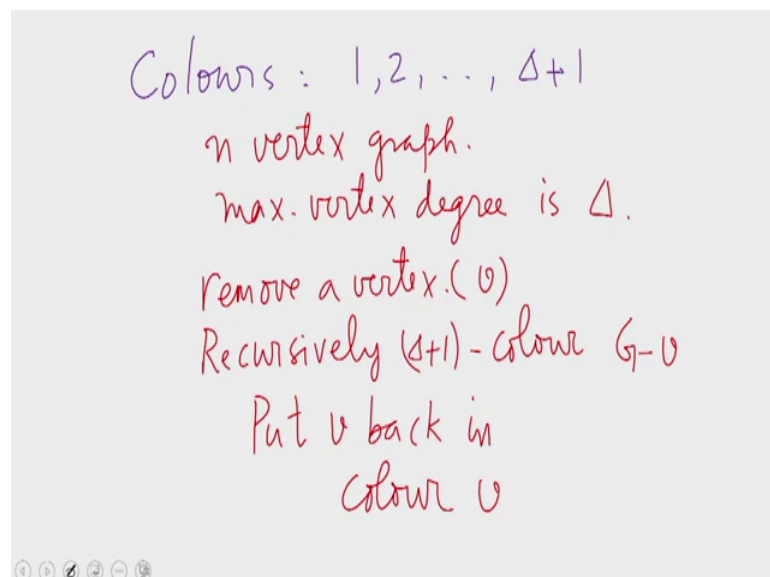 Colours : 1, 2, . . , Δ+1
n vertex graph.
max. vertex degree is Δ.
remove a vertex. (v)
Recursively (Δ+1) - colour G-v
Put v back in
colour v